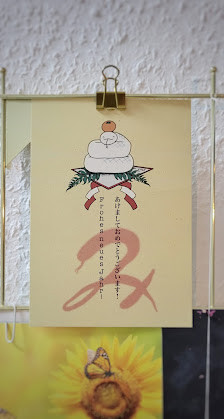 あけましておめでとうございます!
Frohes neues Jahr!